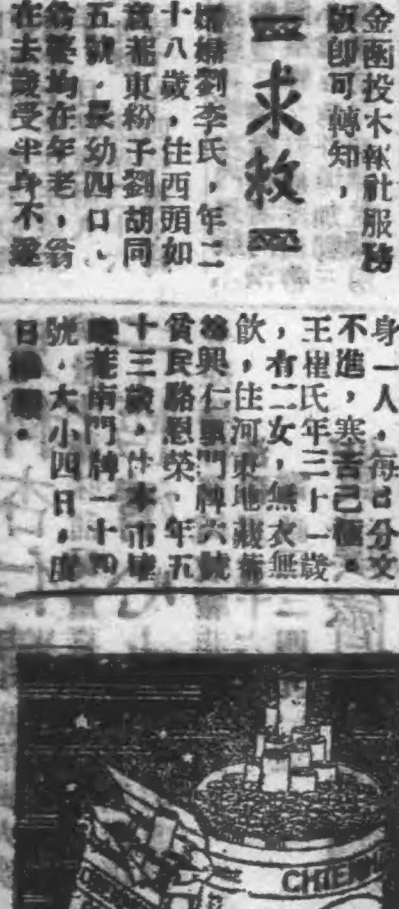 金函投本報社服務
版即可轉知，
求救
孀婦劉李氏，年二
十八歲，住西頭如
意菴東粉子劉胡同
五號，長幼四口，
翁婆均在年老，翁
在去歲受半身不遂
身一人，每日分文
不進，寒苦己極。
王崔氏年三十一歲
，有二女，無衣無
飲，住河東地藏菴
興仁里門牌六號
貧民路恩榮，年五
十三歲，住本市
菴南門牌一十四
號，大小四口，度
日
CHIEN